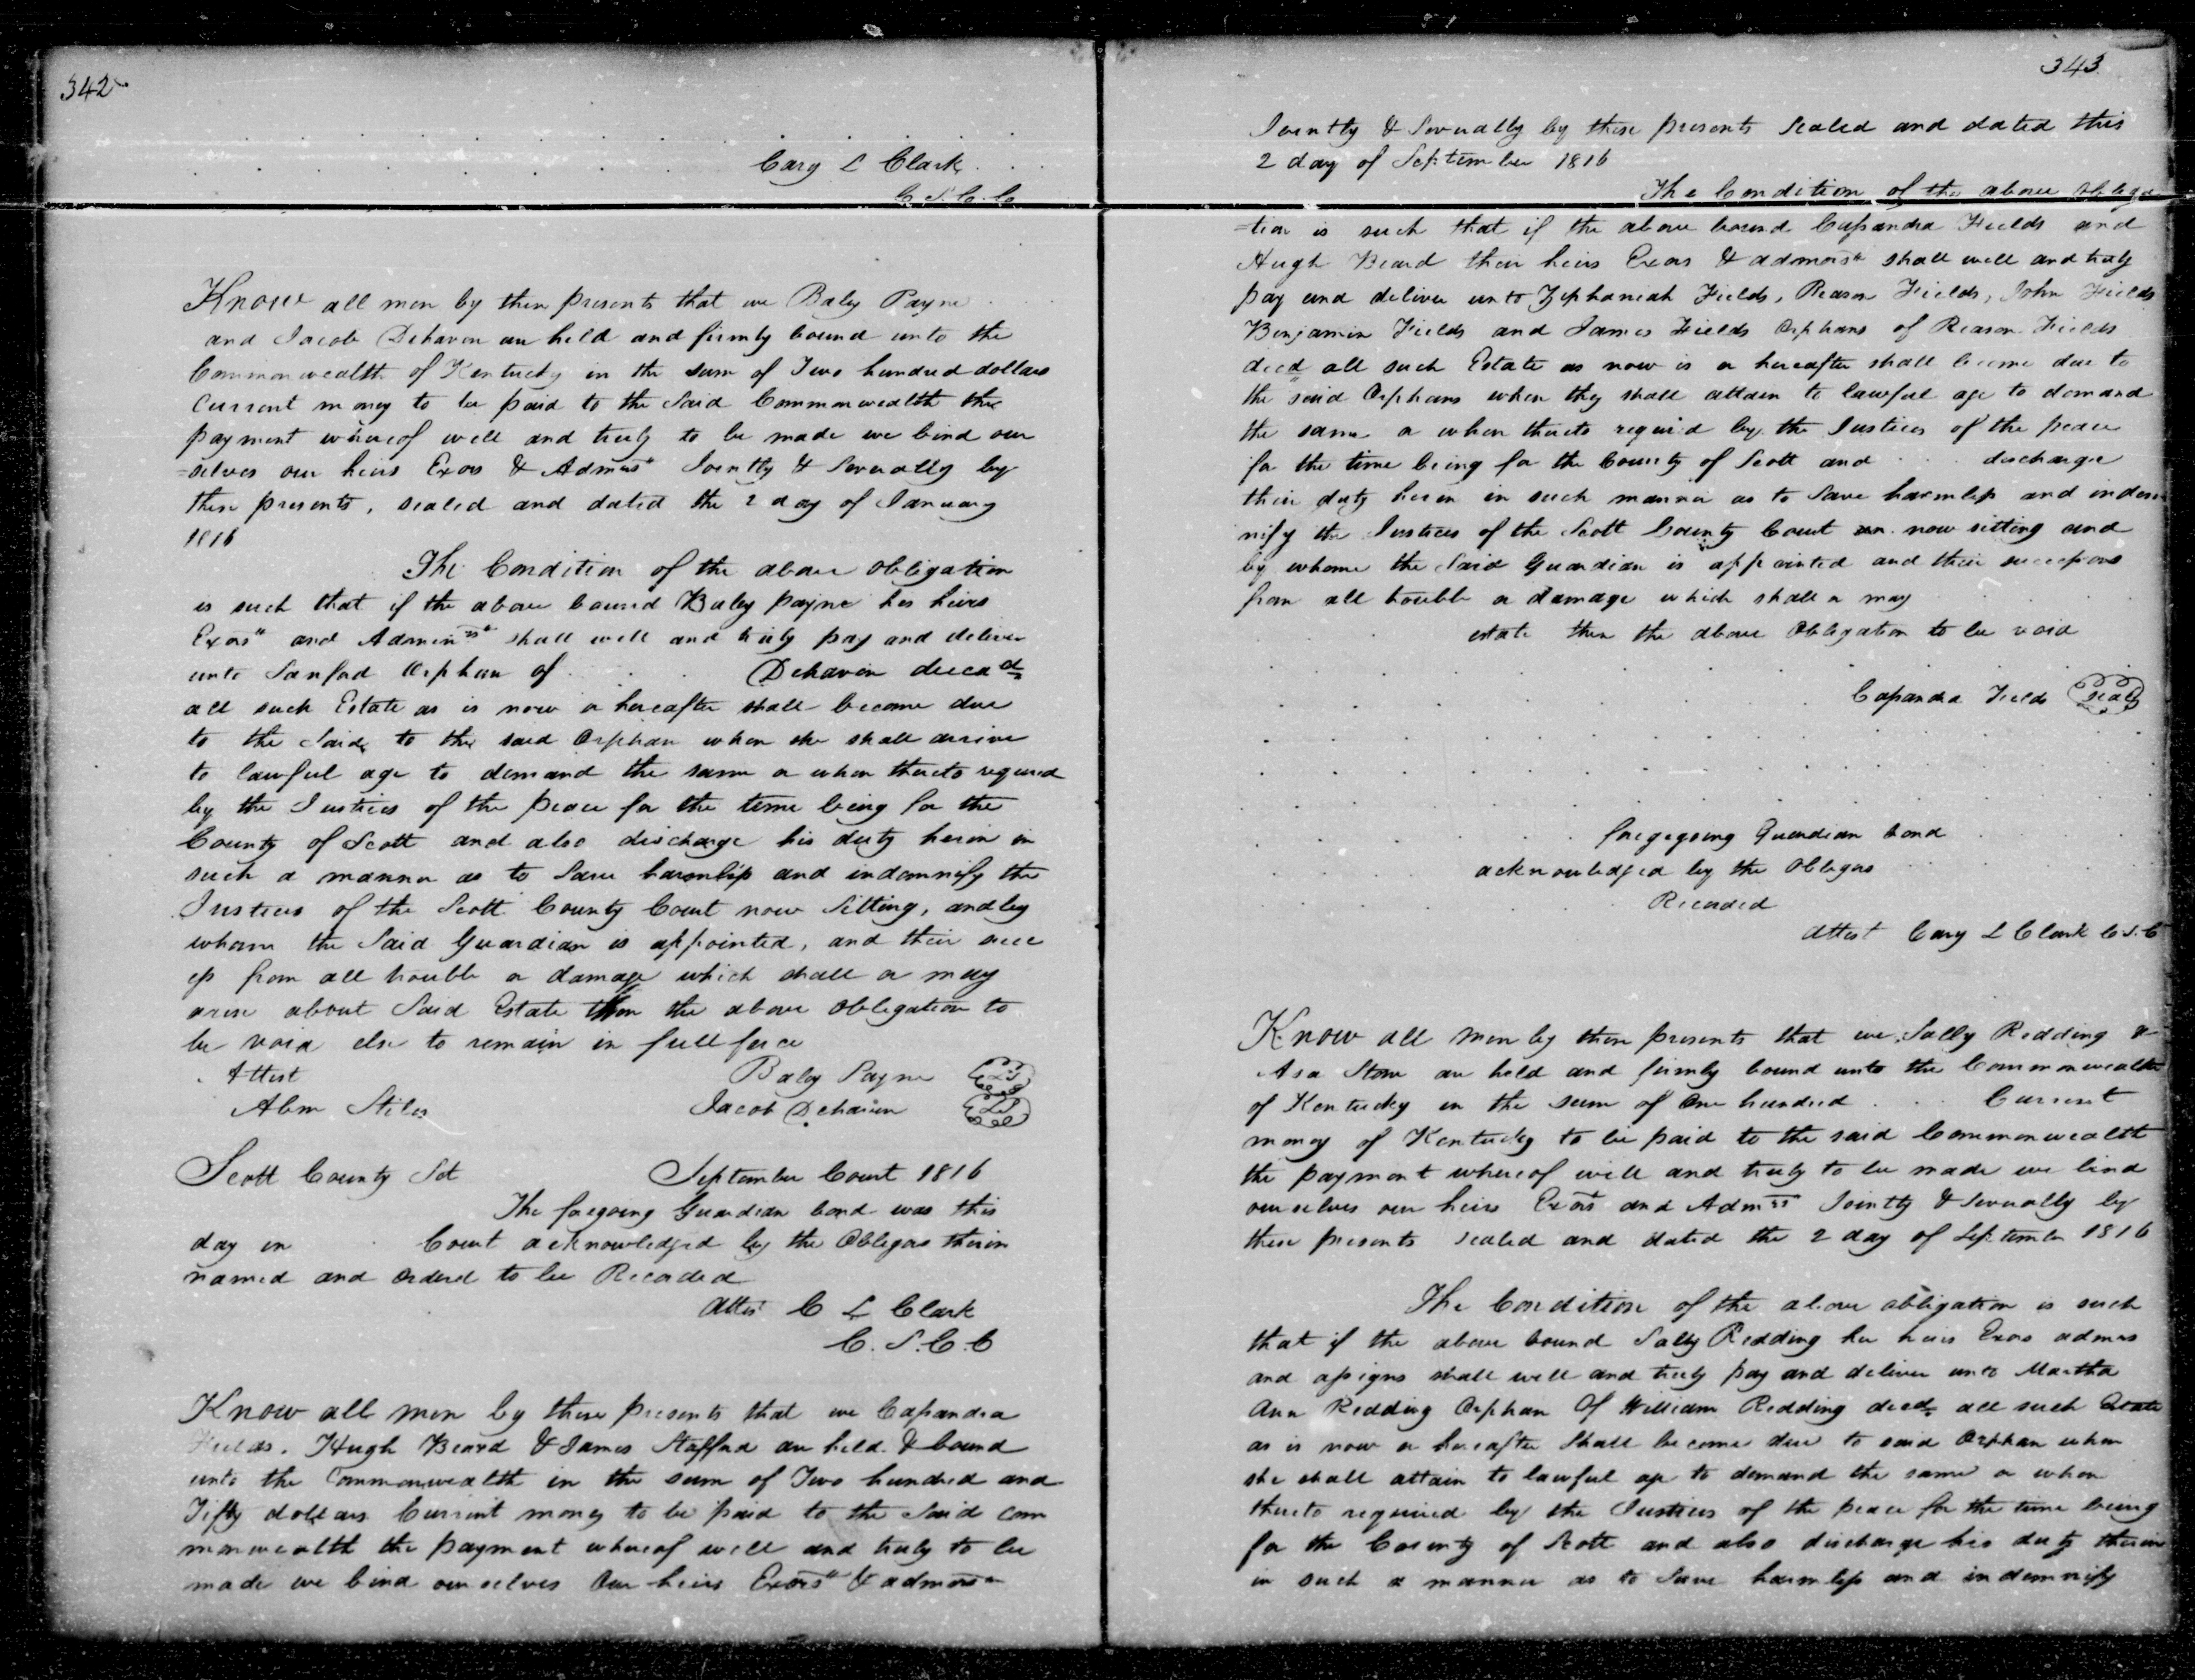 342
Cary L Clark
C S. C. C
Know all men by these presents that we Baley Payne
and Jacob Dehaven are held and firmly bound unto the
Commonwealth of Kentucky in the sum of Two hundred dollars
Current money to be paid to the Said Commonwealth the
payment whereof well and truly to be made we bind our
=selves our heirs Exors & Admrs Jointly & Severally by
these presents, sealed and dated the 2 day of January
1816
The Condition of the above obligation
is such that if the above bound Baley payne his heirs
Exors and Adminrs shall well and truly pay and deliver
unto Sanford Orphan of . . . Dehaven decead
all such Estate as is now or hereafter shall become due
to the Said to the said Orphan when she shall arrive
to lawful age to demand the same or when thereto required
by the Justices of the peace for the time being for the
County of Scott and also discharge his duty herin in
such a manner as to Save harmless and indemnify the
Justices of the Scott County Court now Sitting, and by
whom the Said Guardian is appointed, and their succ
ess from all trouble or damage which shall or may
arise about Said Estate then the above obligation to
be void else to remain in full force
Attest Baley Payne LS
Abm Stiles Jacob Dehaven LS
Scott County Sct September Court 1816
The foregoing Guardian bond was this
day in Court acknowledged by the Obligors therin
named and Ordered to be Recorded
Attest C L Clark
C. S. C. C
Know all men by these presents that we Cassandra
Fields. Hugh Beard & James Stafford are held & bound
unto the Commonwealth in the sum of Two hundred and
Fifty dollars Current money to be paid to the Said com
monwealth the payment whereof well and truly to be
made we bind ourselves Our heirs Exors & admors
343
Jointly & Severally by these presents Sealed and dated this
2 day of September 1816
The Condition of the above obliga
=tion is such that if the above bound Cassandra Fields and
Hugh Beard their heirs Exors & admors shall well and truly
pay and deliver unto Zephaniah Fields, Reason Fields, John Fields
Benjamin Fields and James Fields Orphans of Reason Fields
decd all such Estate as now is or hereafter shall become due to
the said Orphans when they shall attain to lawful age to demand
the same or when thereto requird by the Justices of the peace
for the time being for the County of Scott and . . . discharge
their duty herin in such manner as to Save harmless and indem
nify the Justices of the Scott County Court now sitting and
by whome the Said Guardian is appointed and their successors
from all trouble or damage which shall or may
estate then the above Obligation to be void
Cassandra Fields Seal
foregoing Guardian bond
acknowledged by the Obligors
Recorded
Attest Cary L Clark C S. C
Know all men by these presents that we Sally Redding &
Asa Stone are held and firmly bound unto the Commonwealth
of Kentucky in the sum of One hundred . . . Current
money of Kentucky to be paid to the said Commonwealth
the payment whereof well and truly to be made we bind
ourselves our heirs Exors and Admrs Jointly & Severally by
these presents sealed and dated the 2 day of September 1816
The Condition of the above obligation is such
that if the above bound Sally Redding her heirs Exors admrs
and assigns shall well and truly pay and deliver unto Martha
Ann Redding Orphan Of William Redding decd all such Estate
as is now or hereafter Shall become due to said Orphan when
she shall attain to lawful age to demand the same or when
thereto required by the Justices of the peace for the time being
for the County of Scott and also discharge his duty therin
in such a manner as to Save harmless and indemnify